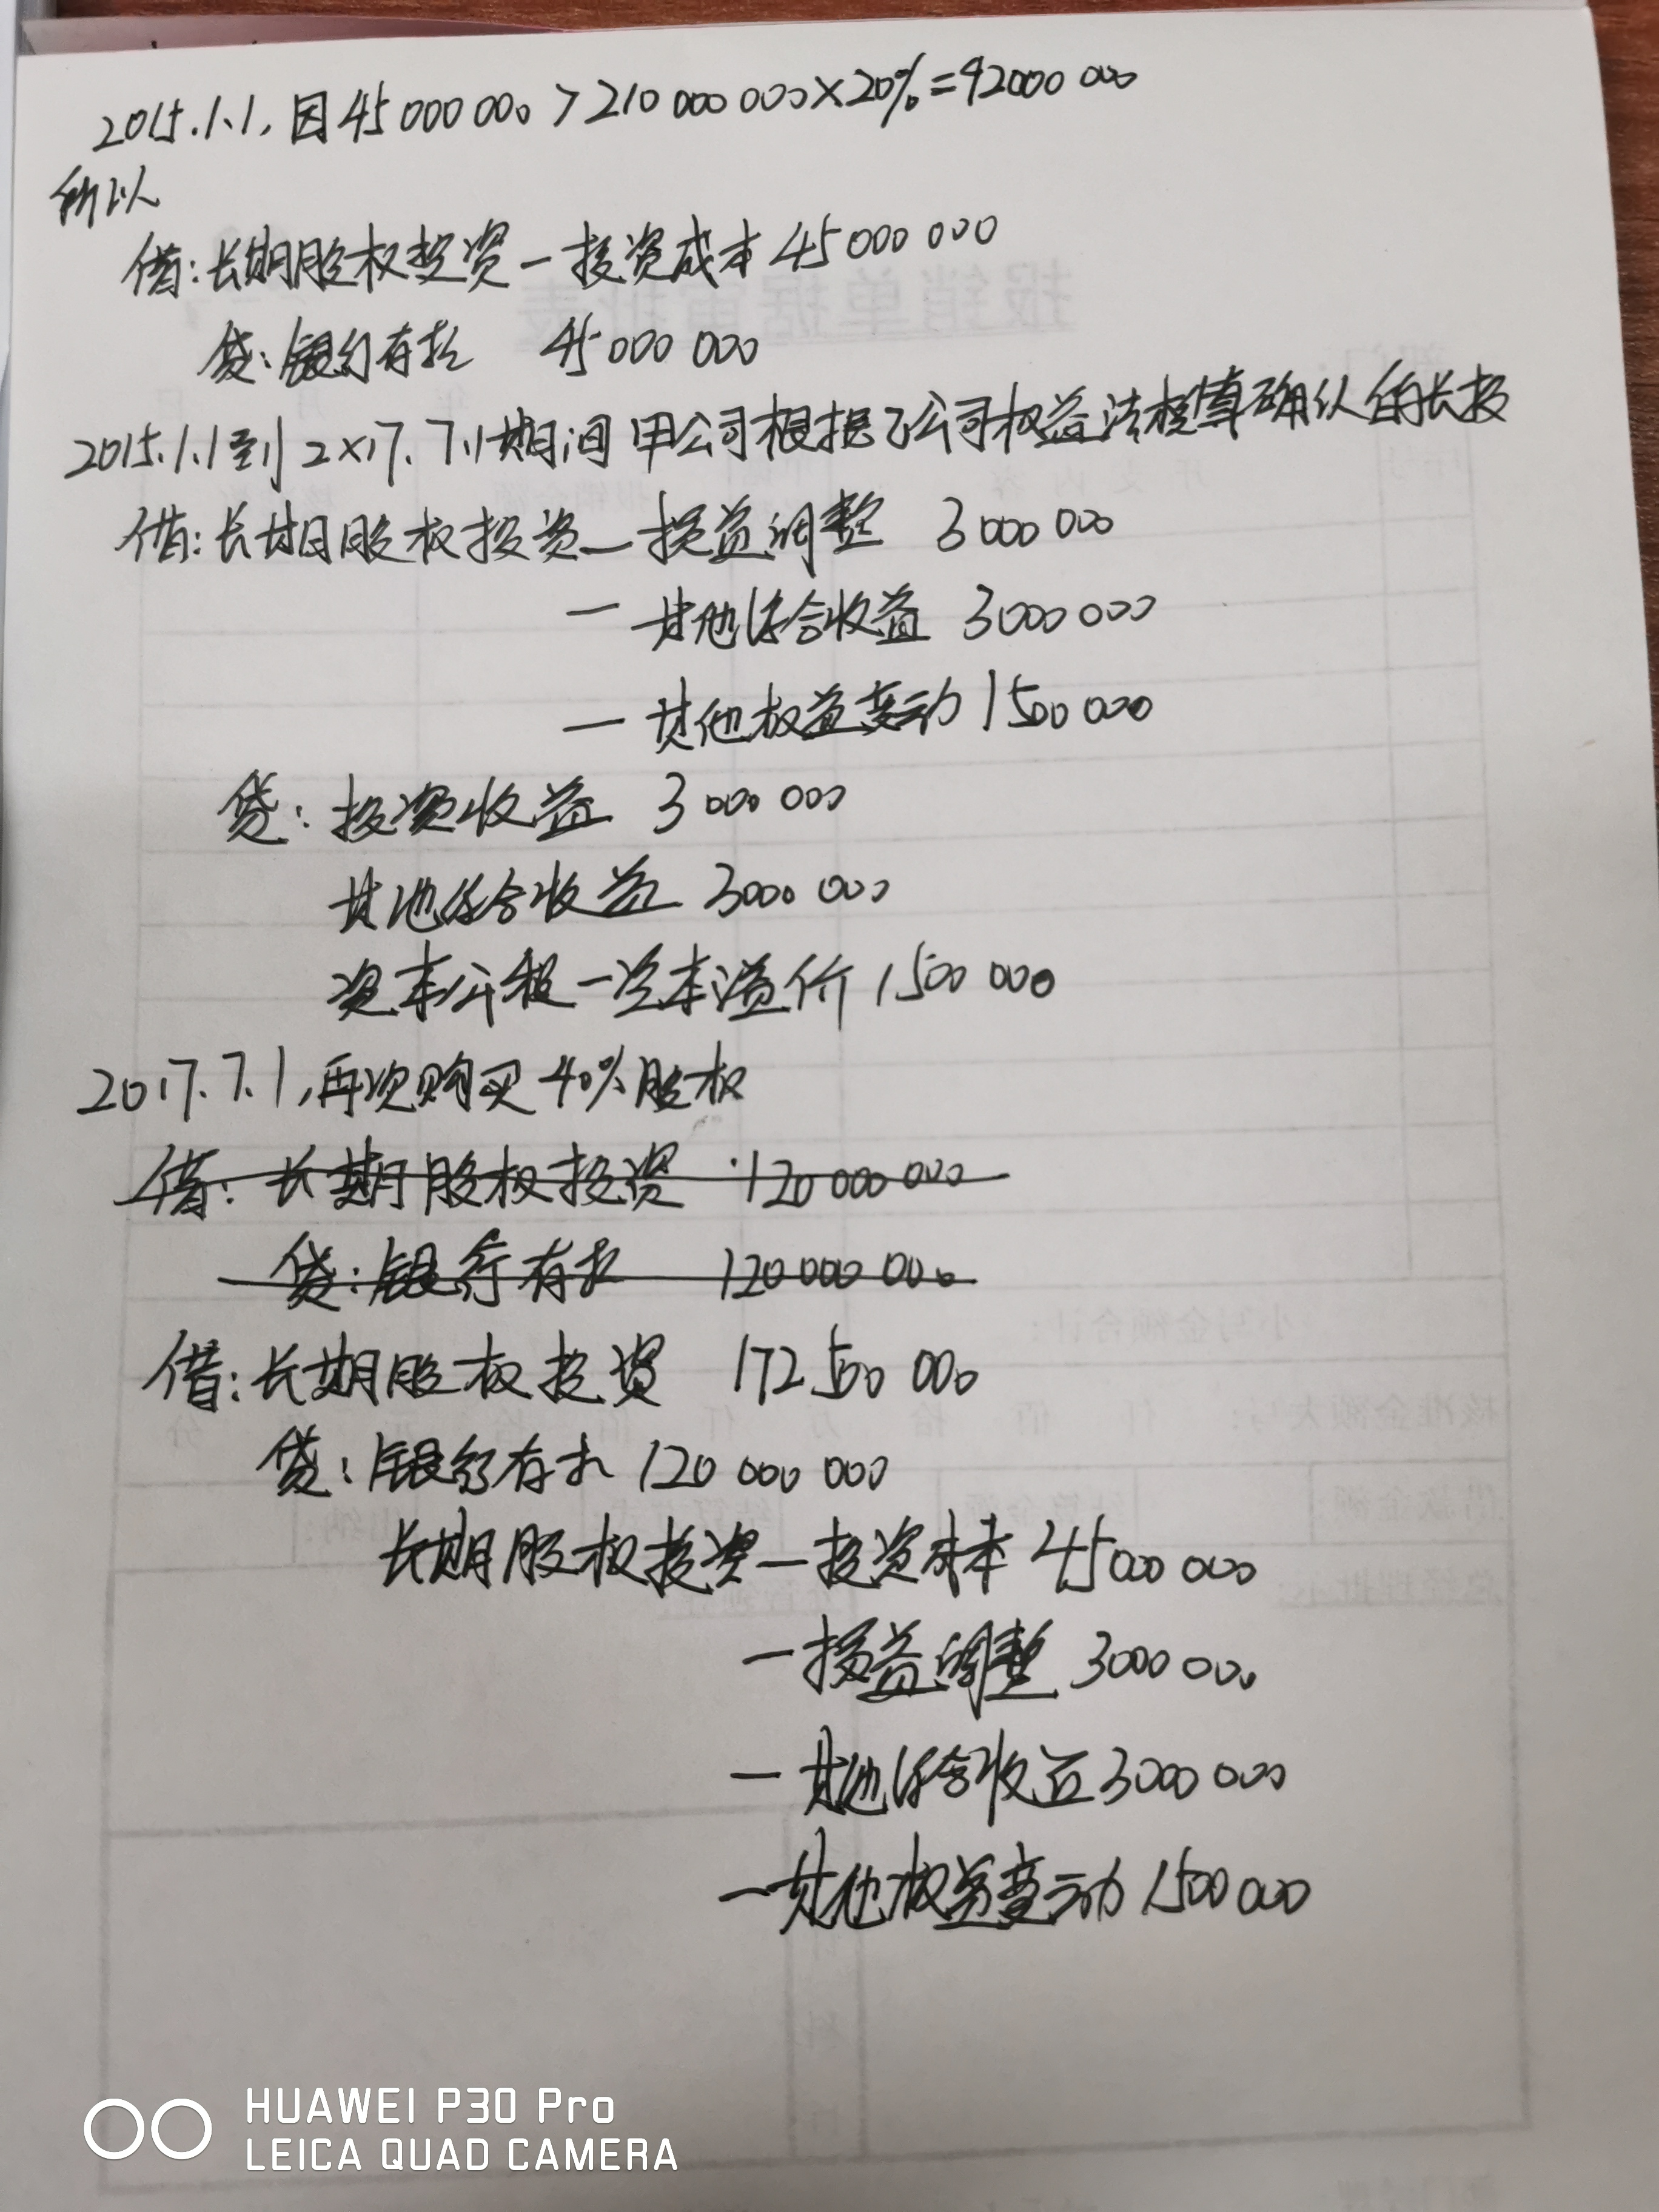 2015.1.1,因45 000 000>210 000 000×20%=42000 000
所以
借:长期股权投资—投资成本 45 000 000
贷:银行存款 45 000 000
2015.1.1到2×17.7.1期间甲公司根据乙公司权益法核算确认的长投
借:长期股权投资—损益调整 3 000 000
—其他综合收益 3000 000
—其他权益变动 1 500 000
贷:投资收益 3 000 000
其他综合收益 3000 000
资本公积—资本溢价 1 500 000
2017.7.1,再次购买40%股权
借:长期股权投资 120 000 000
贷:银行存款 120 000 000
借:长期股权投资 172 500 000
贷:银行存款 120 000 000
长期股权投资—投资成本 45 000 000
—损益调整 3000 000
—其他综合收益 3000 000
—其他权益变动 1 500 000
报销单据审批表
小写金额合计:
核准金额大写: 仟 佰 拾 万 仟 佰 拾 元 分
HUAWEI P30 Pro
LEICA QUAD CAMERA